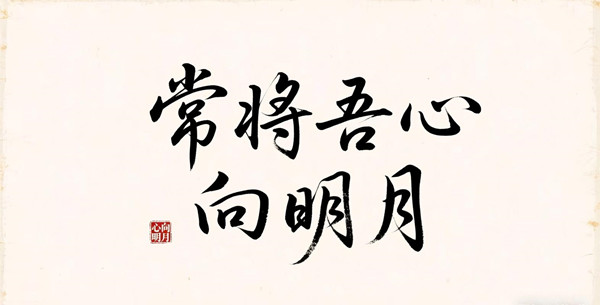 常将吾心
向明月
向月
心明